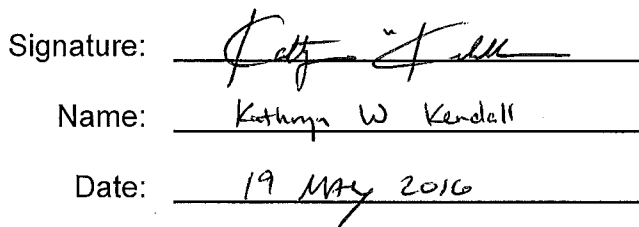 Signature:
Name: Kathryn W Kendall
Date: 19 MAY 2016